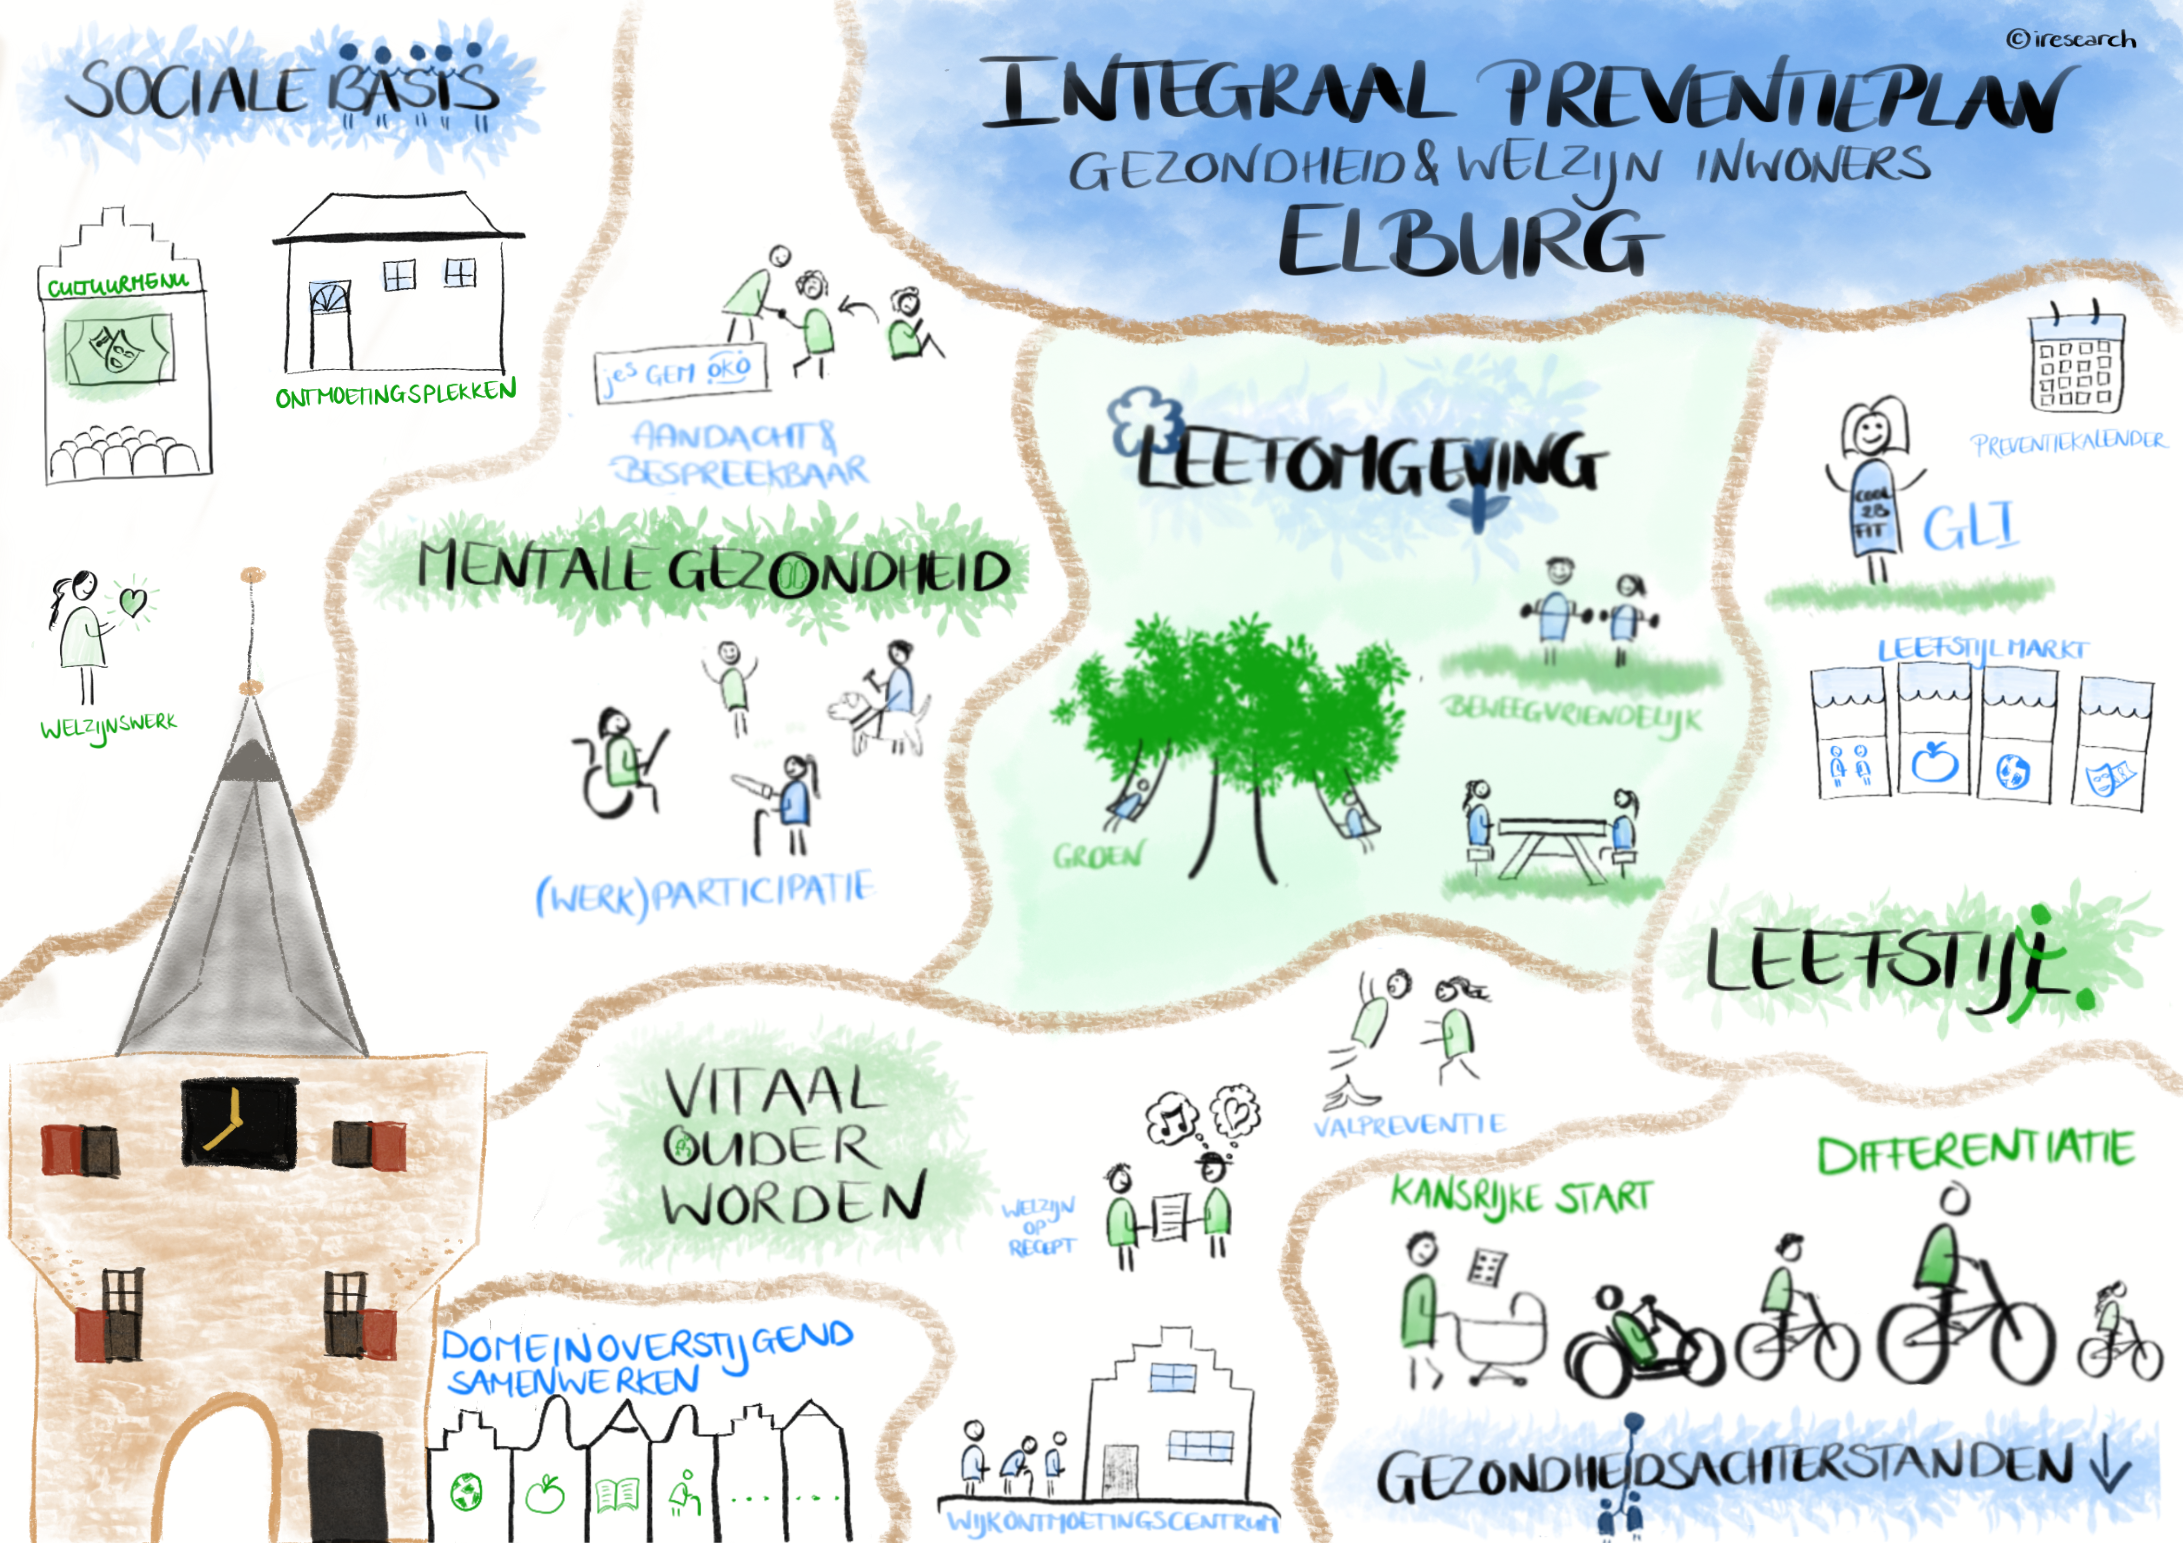 ©iresearch
INTEGRAAL PREVENTIEPLAN
GEZONDHEID & WELZIJN INWONERS
ELBURG
SOCIALE BASIS
CULTUURMENU
ONTMOETINGSPLEKKEN
WELZIJNSWERK
jes GEM OKO
AANDACHT &
BESPREEKBAAR
MENTALE GEZONDHEID
(WERK)PARTICIPATIE
LEEFOMGEVING
BEWEEGVRIENDELIJK
GROEN
PREVENTIEKALENDER
COOL
2B
FIT
GLI
LEEFSTIJLMARKT
LEEFSTIJL
VITAAL
OUDER
WORDEN
WELZIJN
OP
RECEPT
VALPREVENTIE
DOMEINOVERSTIJGEND
SAMENWERKEN
....
....
WIJKONTMOETINGSCENTRUM
KANSRIJKE START
DIFFERENTIATIE
GEZONDHEIDSACHTERSTANDEN ↓